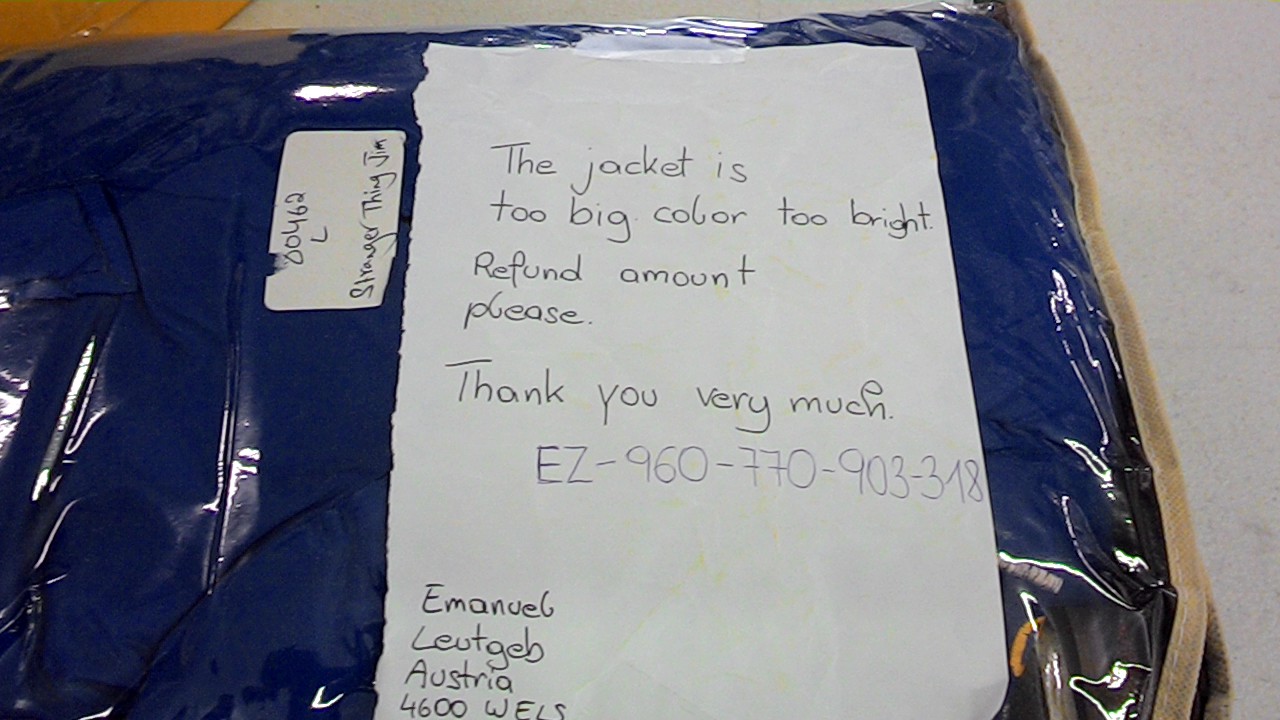 The jacket is
too big. color too bright.
Refund amount
please.
Thank you very much.
EZ-960-770-903-318
Emanuel
Leutgeb
Austria
4600 WELS
00462
L
Stranger Thing Jim